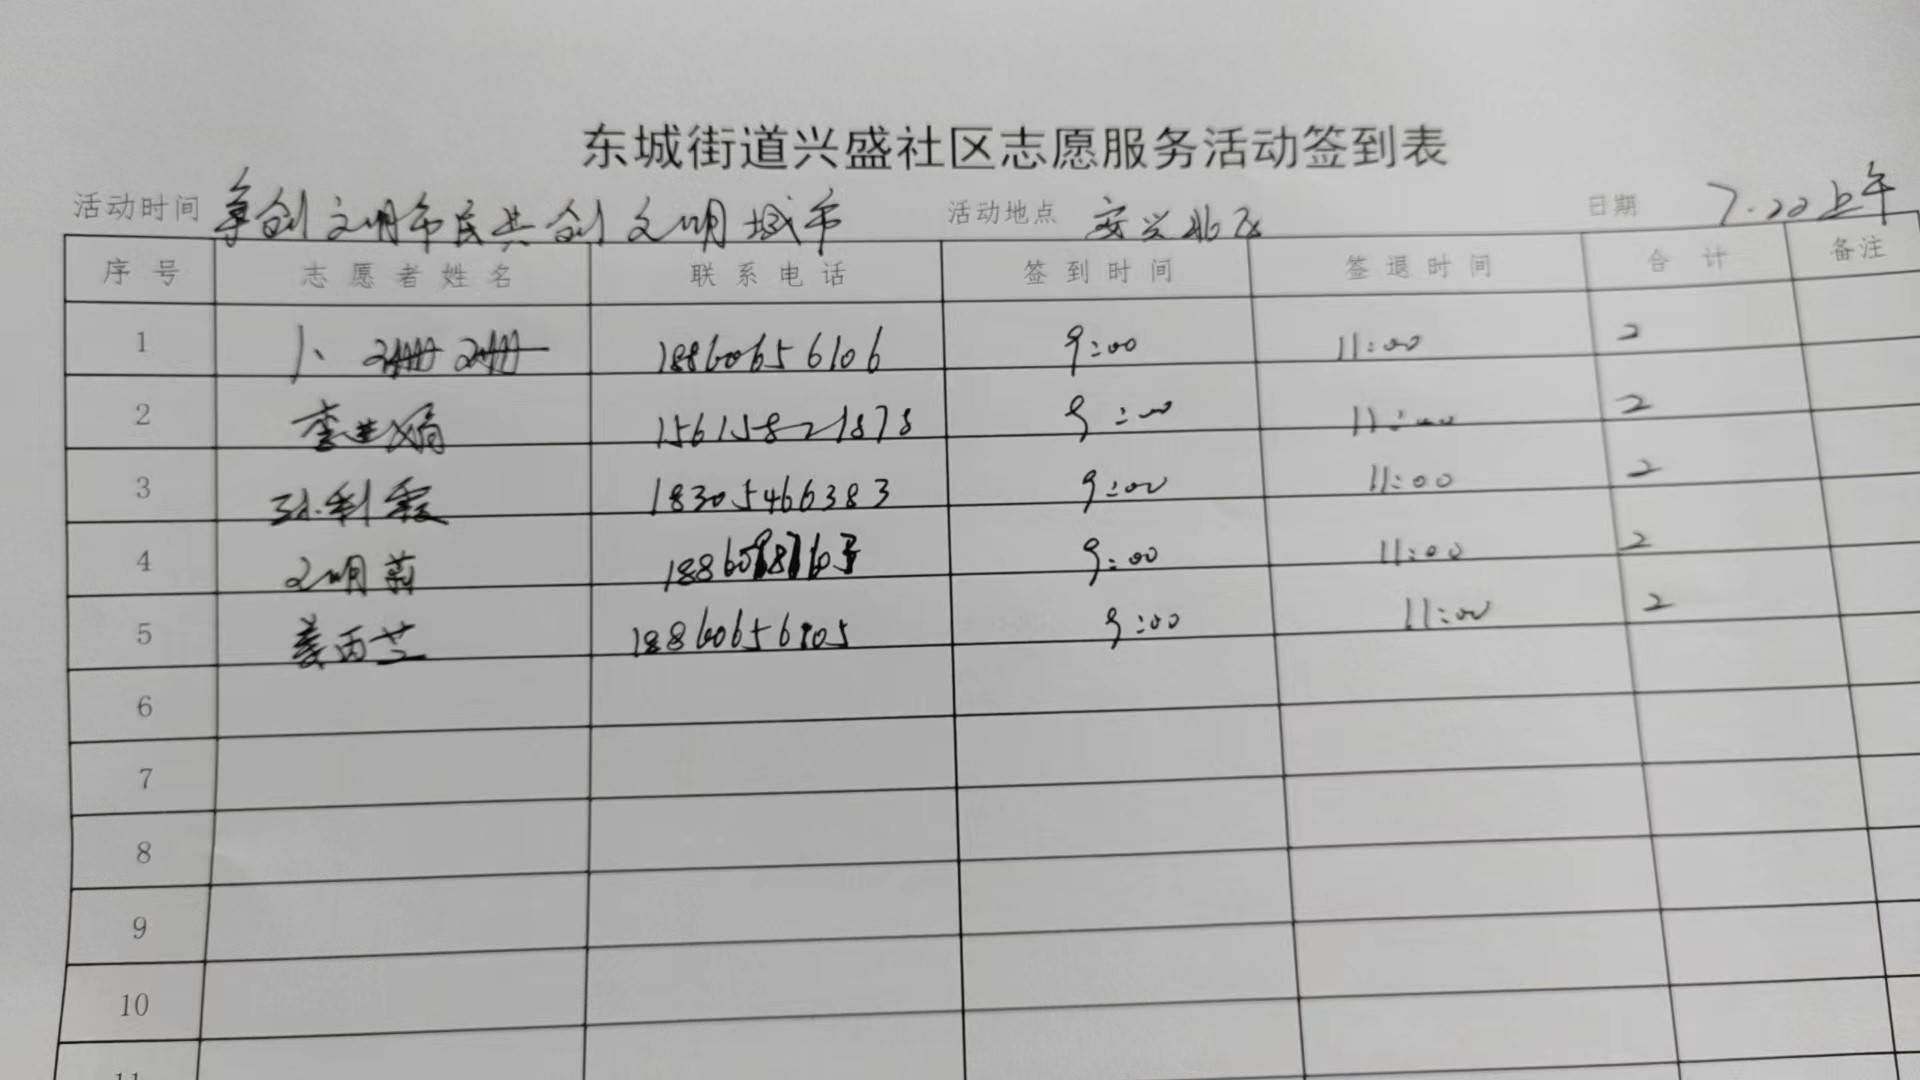 东城街道兴盛社区志愿服务活动签到表
活动时间 争创文明市民共创文明城市 活动地点 安兴北区 日期 7.22上午
序号 志愿者姓名 联系电话 签到时间 签退时间 合计 备注
1 卜珊珊 18860656106 9:00 11:00 2
2 15615821878 9:00 11:00 2
3 孙利霞 18305466383 9:00 11:00 2
4 文明莉 9:00 11:00 2
5 姜丙芝 18860656105 9:00 11:00 2
6
7
8
9
10
11